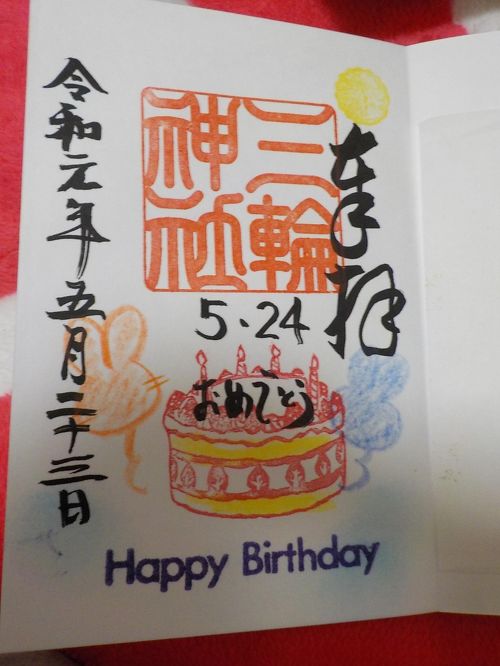 奉拝
三輪
神社
5・24
おめでとう
Happy Birthday
令和元年五月二十三日